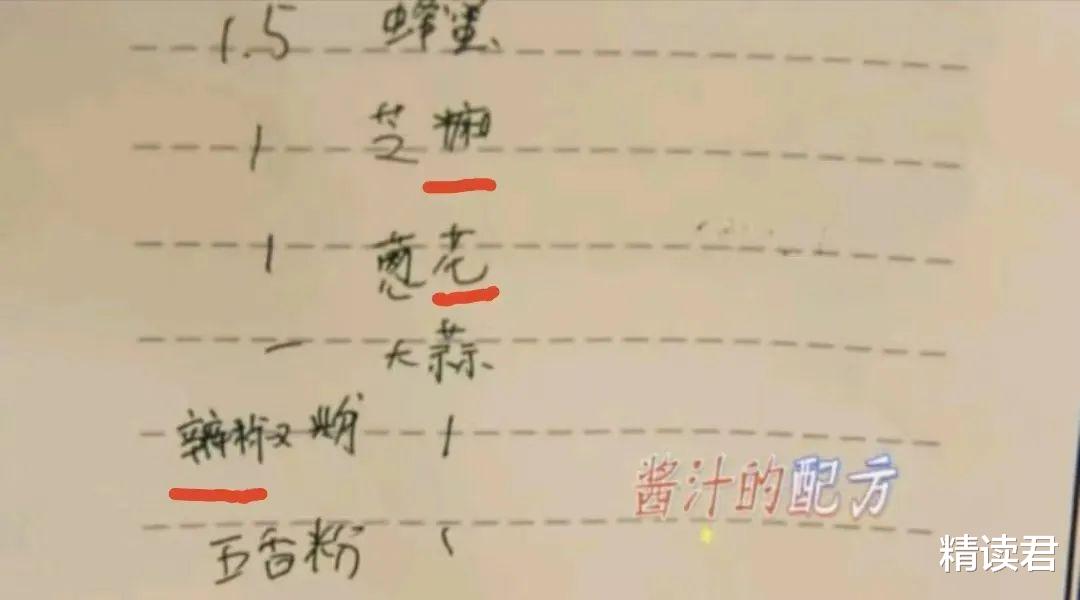 1.5 蜂蜜
1 芝
1 葱花
一 大蒜
粉 1
五香粉 1
酱汁的配方
精读君